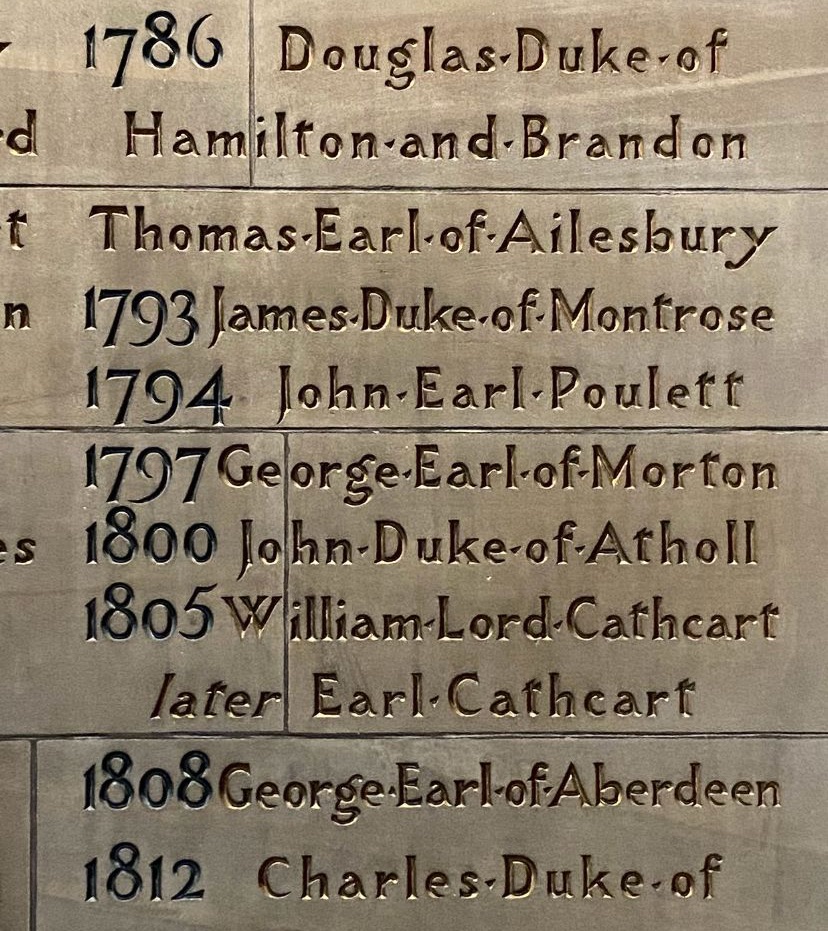 1786 Douglas·Duke·of
d Hamilton·and·Brandon
t Thomas·Earl·of·Ailesbury
n 1793 James·Duke·of·Montrose
1794 John·Earl·Poulett
1797 George·Earl·of·Morton
es 1800 John·Duke·of·Atholl
1805 William·Lord·Cathcart
later Earl·Cathcart
1808 George·Earl·of·Aberdeen
1812 Charles·Duke·of